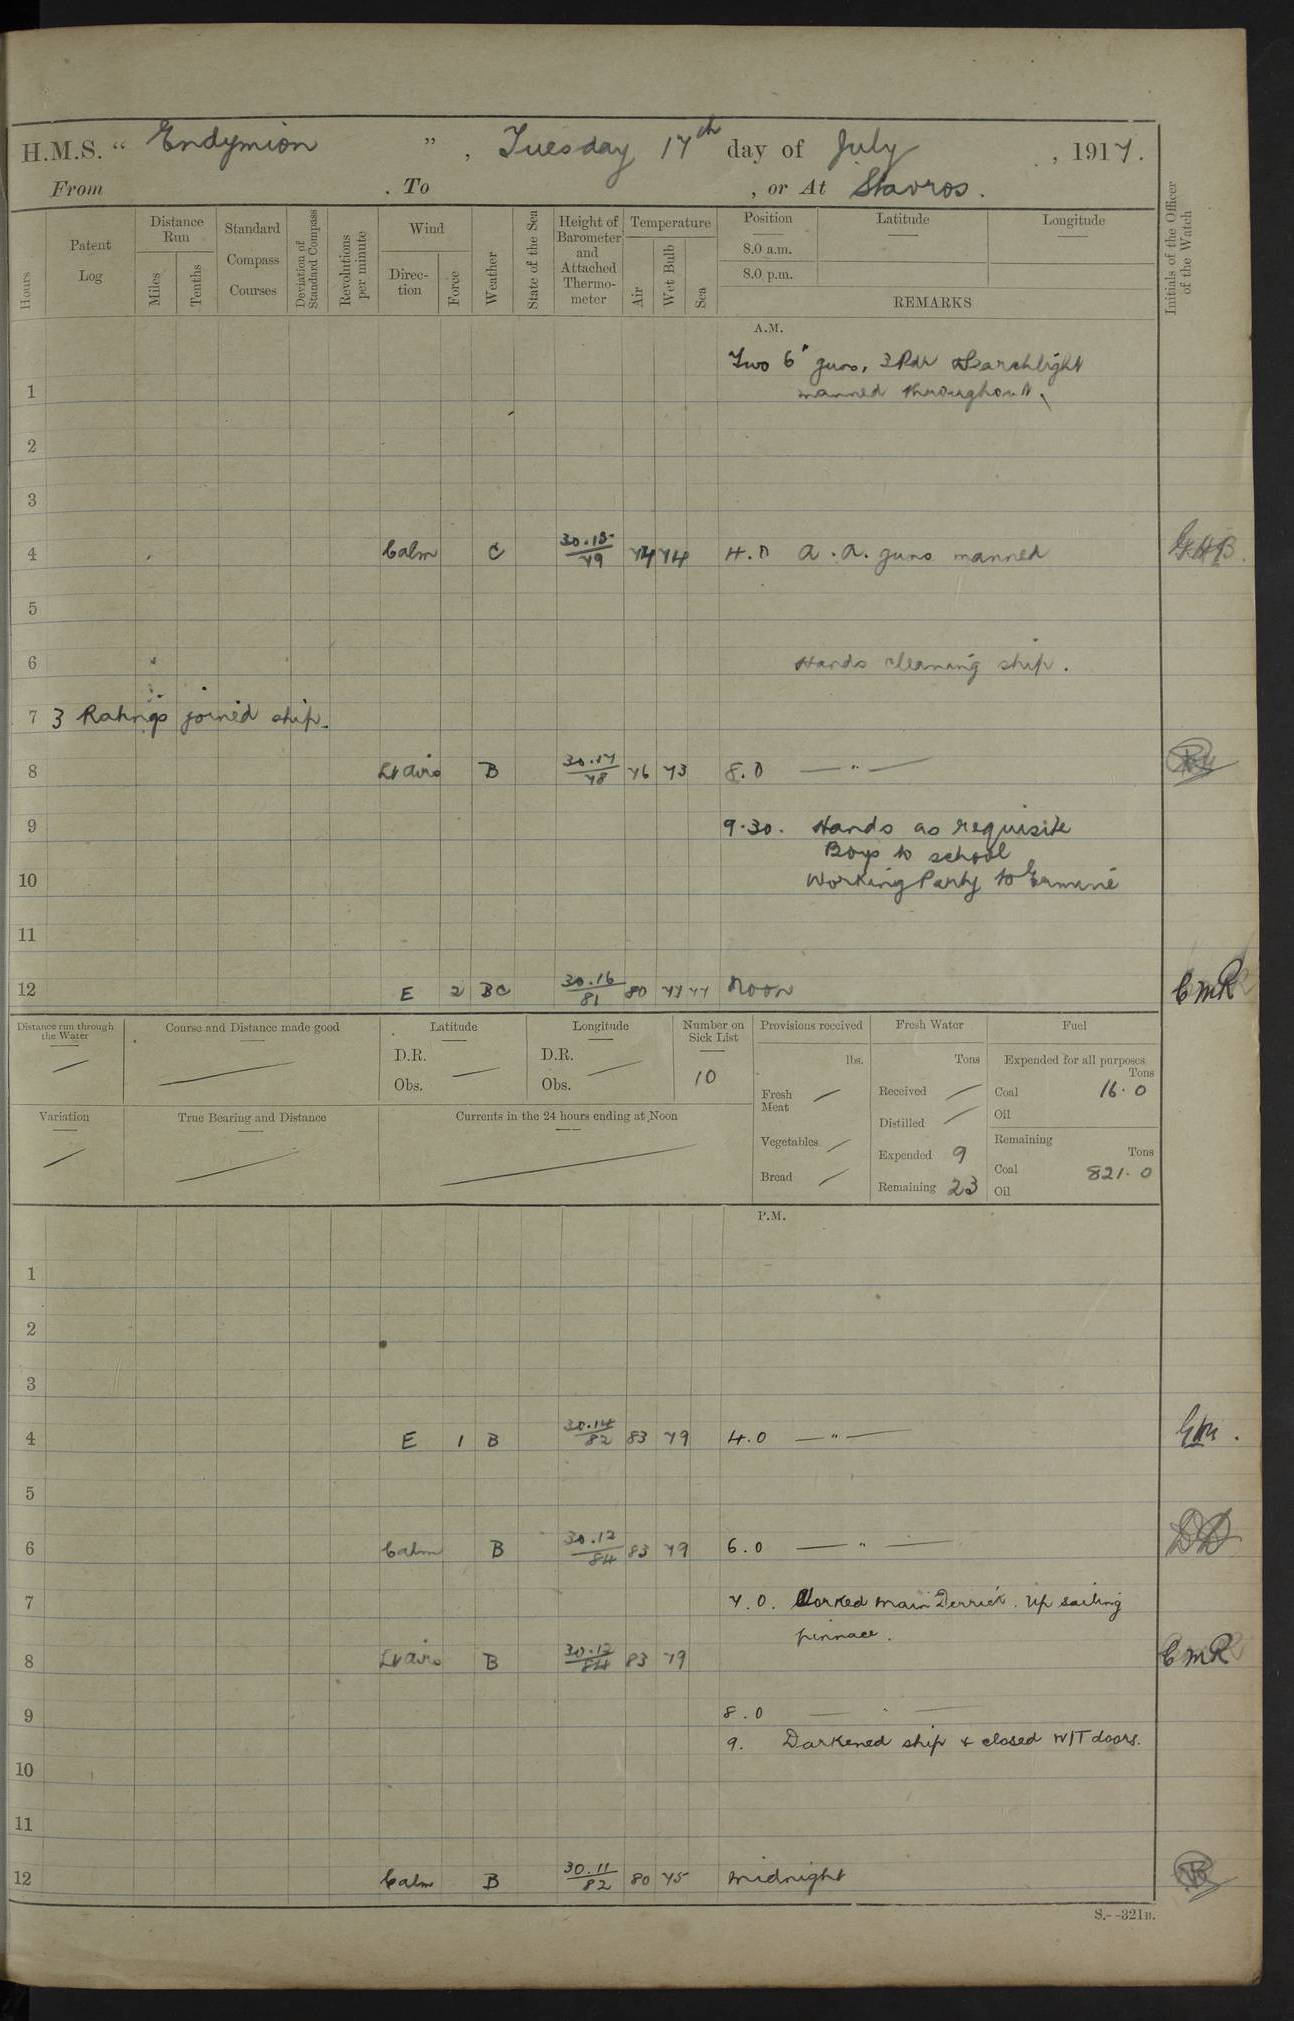 H.M.S. “ Endymion ” , Tuesday 17th day of July , 1917.
From . To , or At Stavros.
Hours
Patent Log
Distance Run
Miles
Tenths
Standard Compass Courses
Deviation of Standard Compass
Revolutions per minute
Wind
Direction
Force
Weather
State of the Sea
Height of Barometer and Attached Thermometer
Temperature
Air
Wet Bulb
Sea
Position
8.0 a.m.
8.0 p.m.
Latitude
Longitude
REMARKS
Initials of the Officer of the Watch
A.M.
Two 6" guns, 3 Pdr Searchlight
1 manned throughout.
2
3
4 Calm C 30.15 79 74 74 4.0 A.A. guns manned G.H.B.
5
6 Hands cleaning ship.
7 3 Ratings joined ship.
8 Lt airs B 30.17 78 76 73 8.0 — " —
9 9.30. Hands as requisite
Boys to school
10 Working Party to Ermine
11
12 E 2 BC 30.16 81 80 77 77 Noon CMR
Distance run through the Water
Course and Distance made good
Latitude
D.R.
Obs.
Longitude
D.R.
Obs.
Number on Sick List
10
Provisions received
lbs.
Fresh Meat
Vegetables
Bread
Fresh Water
Tons
Received
Distilled
Expended 9
Remaining 23
Fuel
Expended for all purposes
Tons
Coal 16.0
Oil
Remaining
Tons
Coal 821.0
Oil
Variation
True Bearing and Distance
Currents in the 24 hours ending at Noon
P.M.
1
2
3
4 E 1 B 30.14 82 83 79 4.0 — " —
5
6 Calm B 30.12 84 83 79 6.0 — " — DD
7 7.0. Worked main Derrick. Up sailing
pinnace.
8 Lt airs B 30.12 84 83 79 CMR
9 8.0 — " —
9. Darkened ship & closed W/T doors.
10
11
12 Calm B 30.11 82 80 75 Midnight
S.--321B.